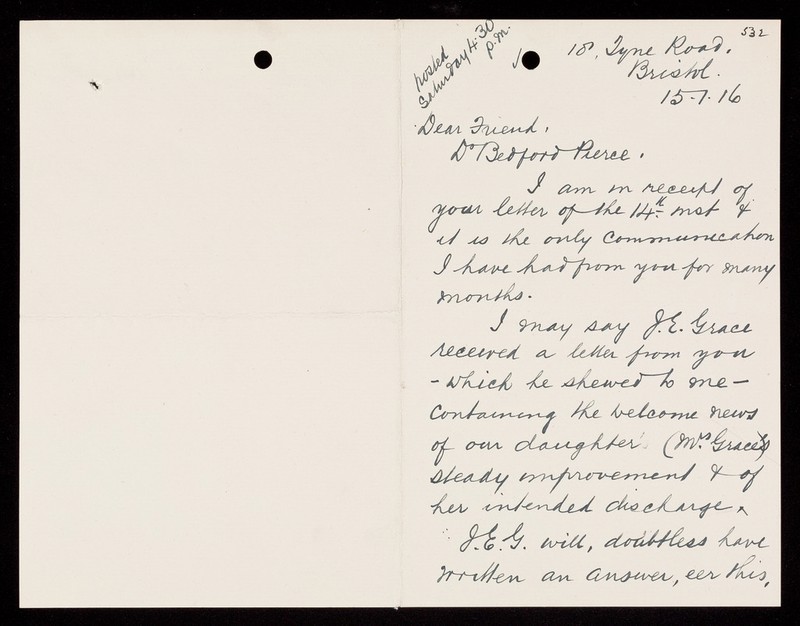 532
posted
Saturday 4.30
p.m.
18, Tyne Road,
Bristol.
15.1.16
Dear Friend,
Dr Bedford Pierce.
I am in receipt of
your letter of the 14th inst &
it is the only communication
I have had from you for many
months.
I may say J.E. Grace
received a letter from you
- which he shewed to me -
containing the welcome news
of our daughter (Mrs Grace's)
steady improvement & of
her intended discharge.
J.E.G. will, doubtless have
written an answer, eer this,